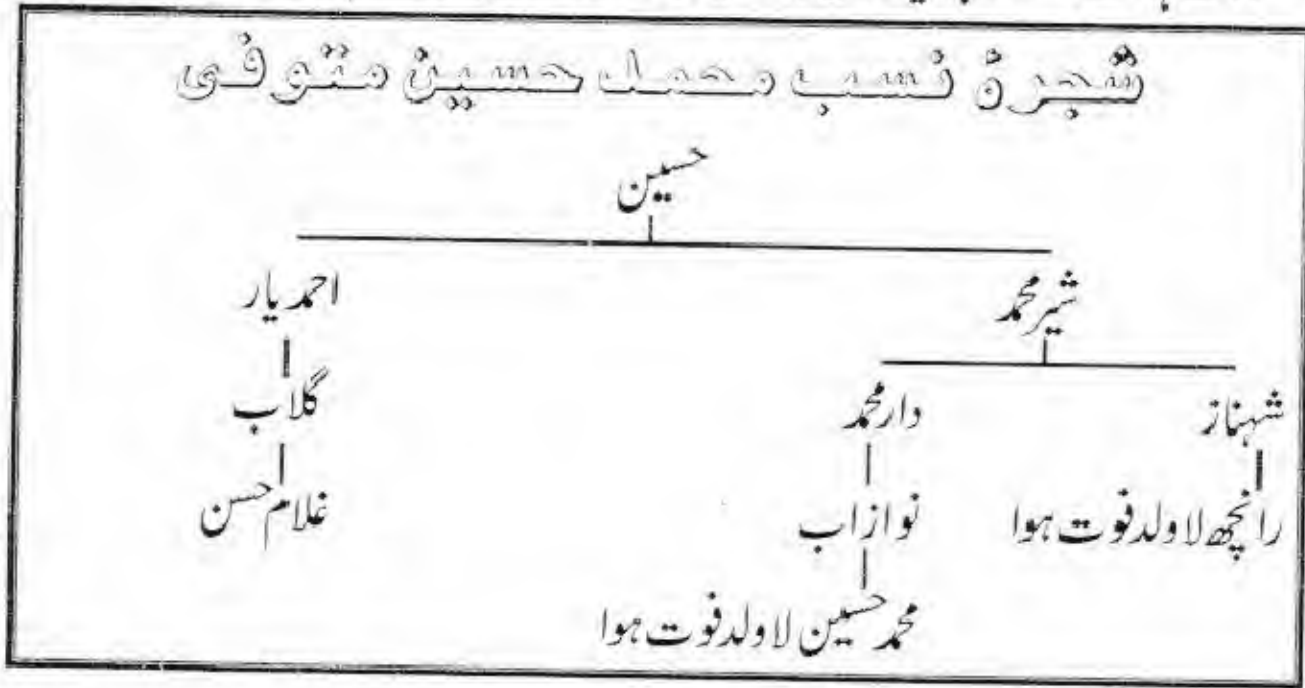 شجرۂ نسب محمد حسین متوفی
حسین
شیر محمد احمد یار
شہناز دار محمد گلاب
رانجھ لا ولد فوت ہوا نوازاب غلام حسن
محمد حسین لا ولد فوت ہوا